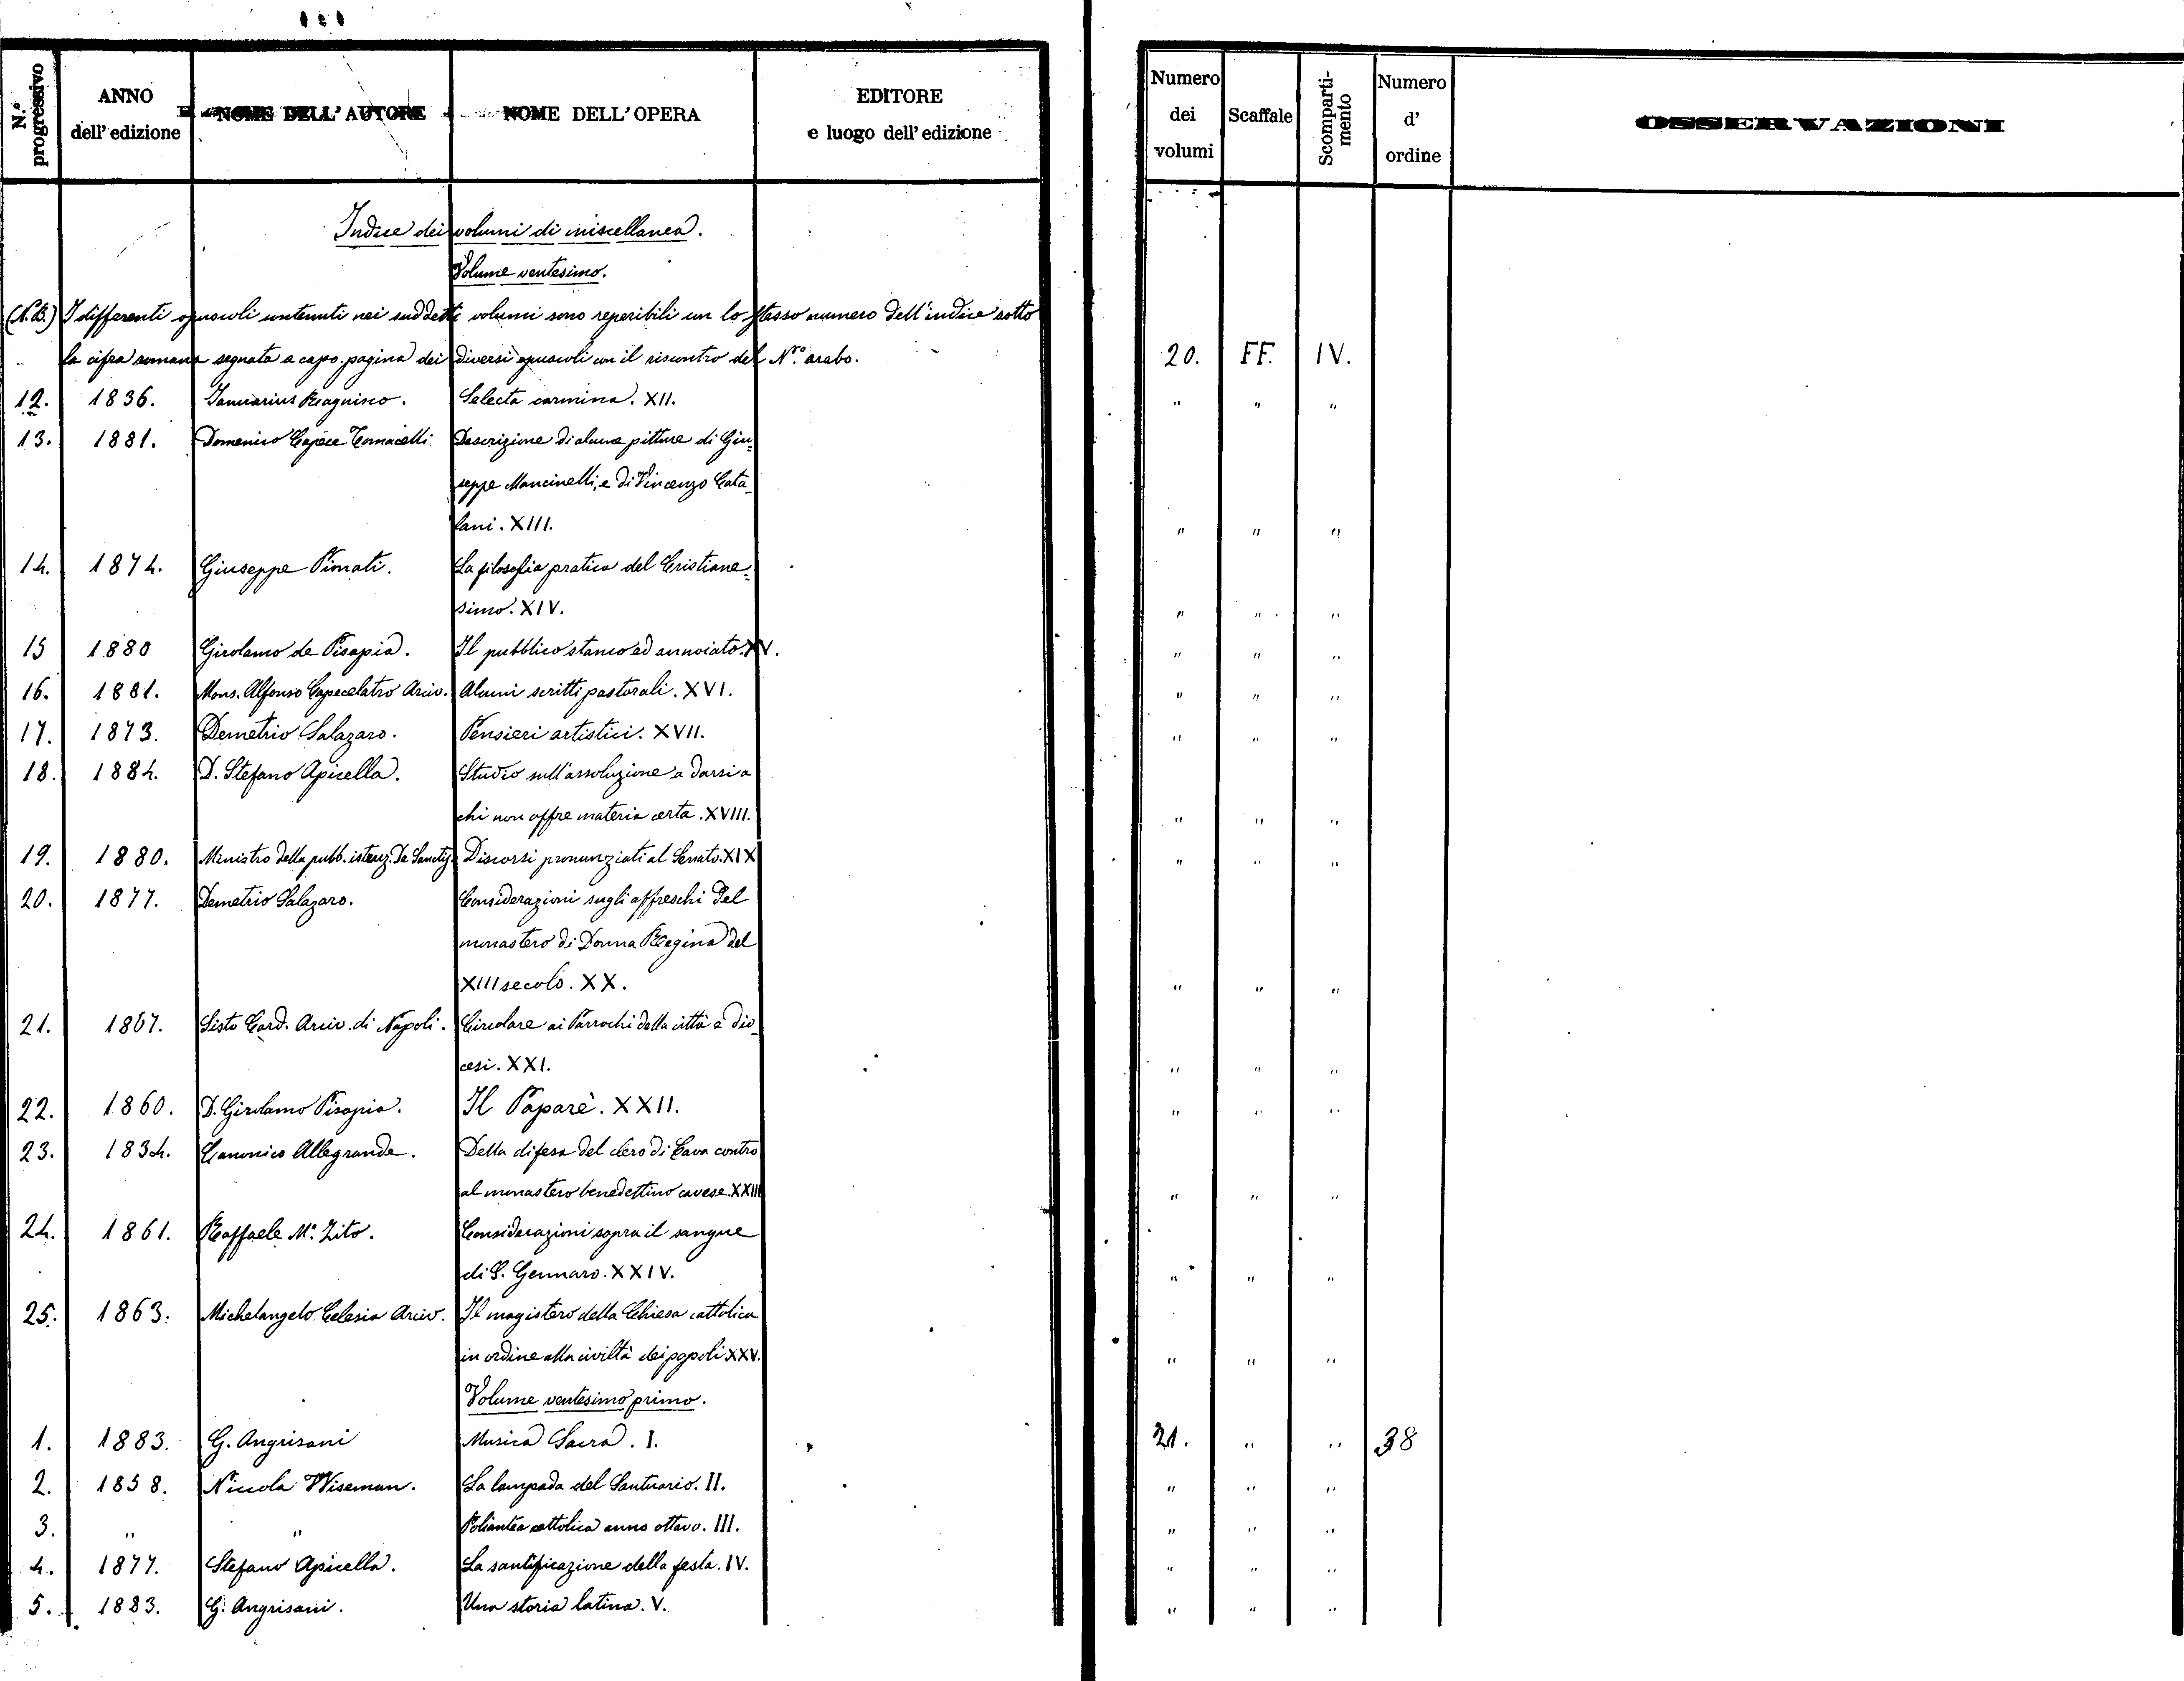 N.° progressivo
ANNO dell'edizione
NOME DELL'AUTORE
NOME DELL'OPERA
EDITORE e luogo dell'edizione
Numero dei volumi
Scaffale
Scomparti-mento
Numero d' ordine
OSSERVAZIONI
Indice dei volumi di miscellanea.
Volume ventesimo.
(N.B.) I differenti opuscoli contenuti nei suddetti volumi sono reperibili con lo stesso numero dell'indice sotto
la cifra romana segnata a capo pagina dei diversi opuscoli con il riscontro del Nro. arabo. 20. FF. IV.
12. 1836. Januarius Reaguisco. Selecta carmina. XII. " " "
13. 1881. Domenico Capece Tomacelli. Descrizione di alcune pitture di Giu=
seppe Mancinelli, e di Vincenzo Cata-
lani. XIII. " " "
14. 1874. Giuseppe Pionati. La filosofia pratica del Cristiane=
simo. XIV. " " "
15 1880 Girolamo de Pisapia. Il pubblico stanco ed annoiato. XV. " " "
16. 1881. Mons. Alfonso Capecelatro Arciv. Alcuni scritti pastorali. XVI. " " "
17. 1873. Demetrio Salazaro. Pensieri artistici. XVII. " " "
18. 1884. D. Stefano Apicella. Studio sull'assoluzione a darsi a
chi non offre materia certa. XVIII. " " "
19. 1880. Ministro della pubb. istruz. De Sanctis. Discorsi pronunziati al Senato. XIX " " "
20. 1877. Demetrio Salazaro. Considerazioni sugli affreschi del
monastero di Donna Regina del
XIII secolo. XX. " " "
21. 1867. Sisto Card. Arciv. di Napoli. Circolare ai Parrochi della città e dio-
cesi. XXI. " " "
22. 1860. D. Girolamo Pisapia. Il Paparè. XXII. " " "
23. 1834. Canonico Allegrande. Della difesa del clero di Cava contro
al monastero benedettino cavese. XXIII " " "
24. 1861. Raffaele M.a Zito. Considerazioni sopra il sangue
di S. Gennaro. XXIV. " " "
25. 1863. Michelangelo Celesia Arciv. Il magistero della Chiesa cattolica
in ordine alla civiltà dei popoli XXV. " " "
Volume ventesimo primo.
1. 1883. G. Angrisani Musica Sacra. I. 21. " " 38
2. 1858. Niccola Wiseman. La lampada del Santuario. II. " " "
3. " " Poliantea cattolica anno ottavo. III. " " "
4. 1877. Stefano Apicella. La santificazione della festa. IV. " " "
5. 1883. G. Angrisani. Una storia latina. V. " " "